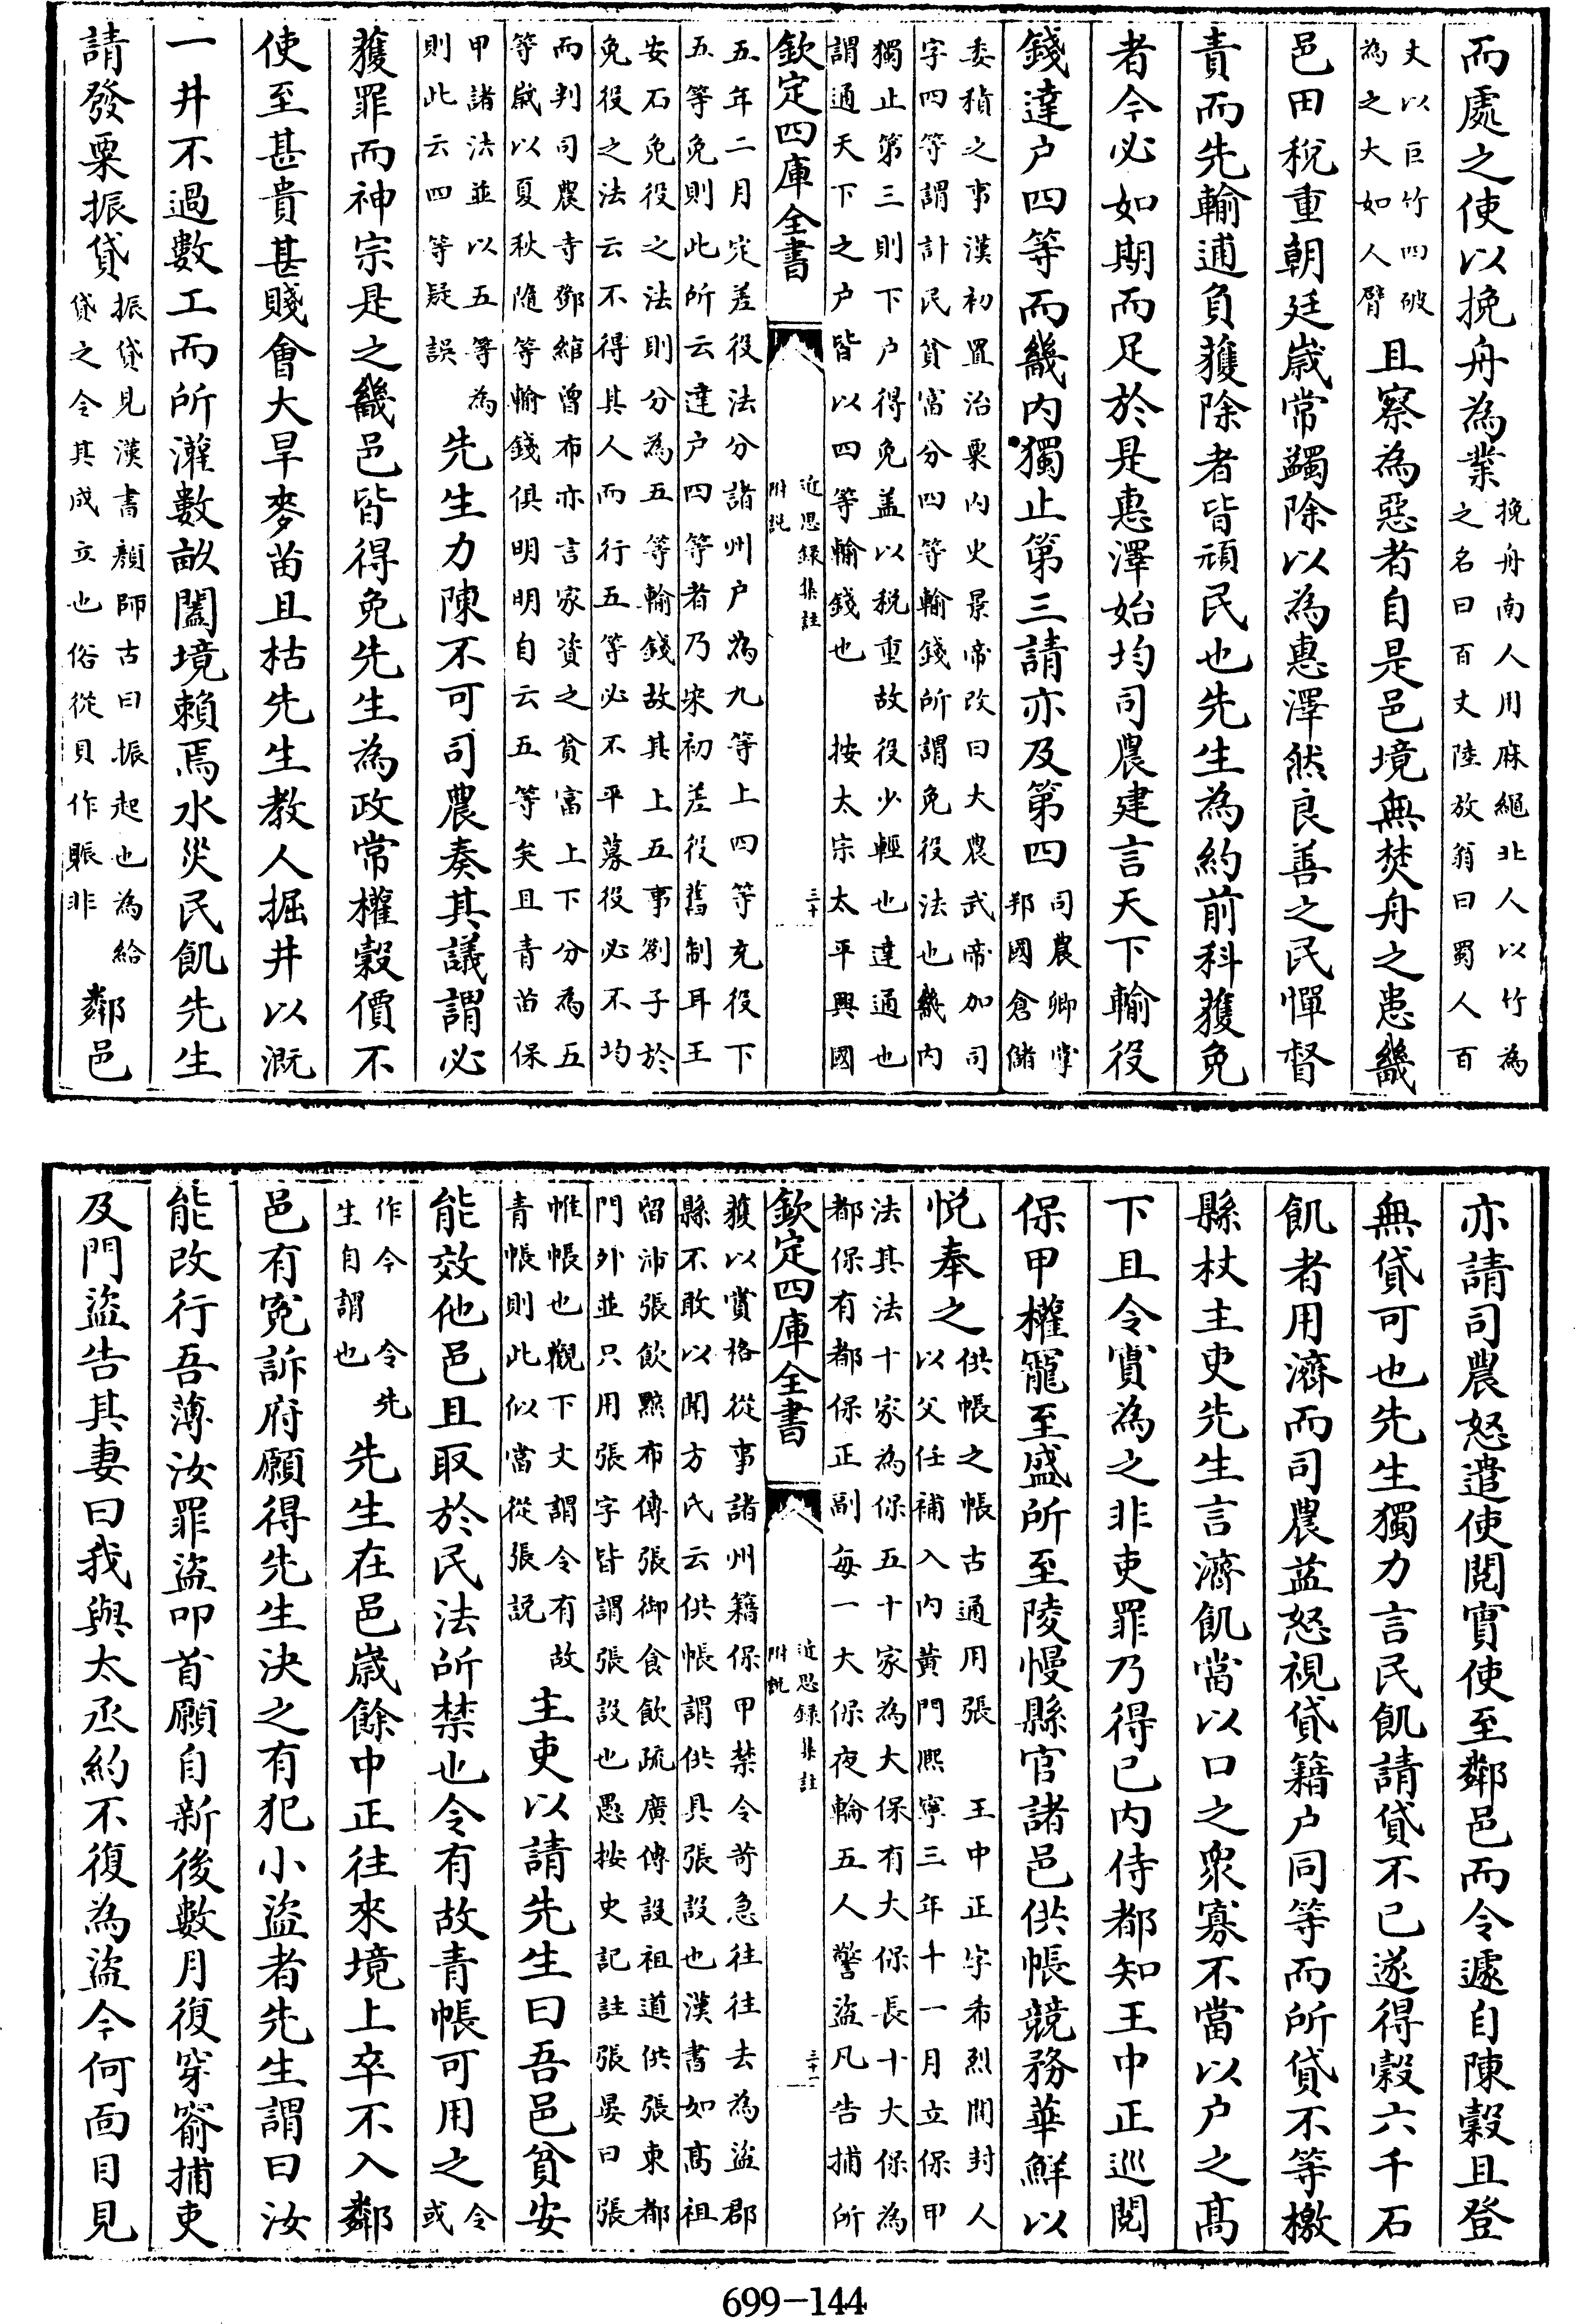 而處之使以挽舟為業挽舟南人用麻繩北人以竹為之名曰百丈陸放翁曰蜀人百
丈以巨竹四破為之大如人臂且察為惡者自是邑境無焚舟之患畿
邑田稅重朝廷歲常蠲除以為惠澤然良善之民憚督
責而先輸逋負獲除者皆頑民也先生為約前科獲免
者今必如期而足於是惠澤始均司農建言天下輸役
錢達户四等而畿內獨止第三請亦及第四司農卿掌邦國倉儲
委積之事漢初置治粟內史景帝改曰大農武帝加司字四等謂計民貧富分四等輸錢所謂免役法也畿內
獨止第三則下户得免盖以税重故役少輕也達通也謂通天下之户皆以四等輸錢也 按太宗太平興國
欽定四庫全書 近思録集註附説 三十
五年二月定差役法分諸州户為九等上四等充役下五等免則此所云達户四等者乃宋初差役舊制耳王
安石免役之法則分為五等輸錢故其上五事劄子於免役之法云不得其人而行五等必不平募役必不均
而判司農寺鄧綰曾布亦言家資之貧富上下分為五等歲以夏秋隨等輸錢俱明明自云五等矣且青苗保
甲諸法並以五等為則此云四等疑誤先生力陳不可司農奏其議謂必
獲罪而神宗是之畿邑皆得免先生為政常權穀價不
使至甚貴甚賤會大旱麥苗且枯先生教人掘井以溉
一井不過數工而所灌數畝闔境賴焉水災民飢先生
請發粟振貸振貸見漢書顏師古曰振起也為給貸之令其成立也俗從貝作賑非鄰邑
亦請司農怒遣使閱實使至鄰邑而令遽自陳穀且登
無貸可也先生獨力言民飢請貸不已遂得穀六千石
飢者用濟而司農益怒視貸籍户同等而所貸不等檄
縣杖主吏先生言濟飢當以口之衆寡不當以户之高
下且令實為之非吏罪乃得已內侍都知王中正巡閱
保甲權寵至盛所至陵慢縣官諸邑供帳競務華鮮以
悅奉之供帳之帳古通用張 王中正字希烈開封人以父任補入內黃門熙寧三年十一月立保甲
法其法十家為保五十家為大保有大保長十大保為都保有都保正副每一大保夜輪五人警盜凡告捕所
欽定四庫全書 近思録集註附説 三十一
獲以賞格從事諸州籍保甲禁令苛急往往去為盜郡縣不敢以聞方氏云供帳謂供具張設也漢書如高祖
留沛張飲黥布傳張御食飲疏廣傳設祖道供張東都門外並只用張字皆謂張設也愚按史記註張晏曰張
帷帳也觀下文謂令有故青帳則此似當從張説主吏以請先生曰吾邑貧安
能效他邑且取於民法所禁也令有故青帳可用之令或
作今 令先生自謂也先生在邑歲餘中正往來境上卒不入鄰
邑有冤訴府願得先生決之有犯小盜者先生謂曰汝
能改行吾薄汝罪盜叩首願自新後數月復穿窬捕吏
及門盜告其妻曰我與太丞約不復為盜今何面目見
699-144